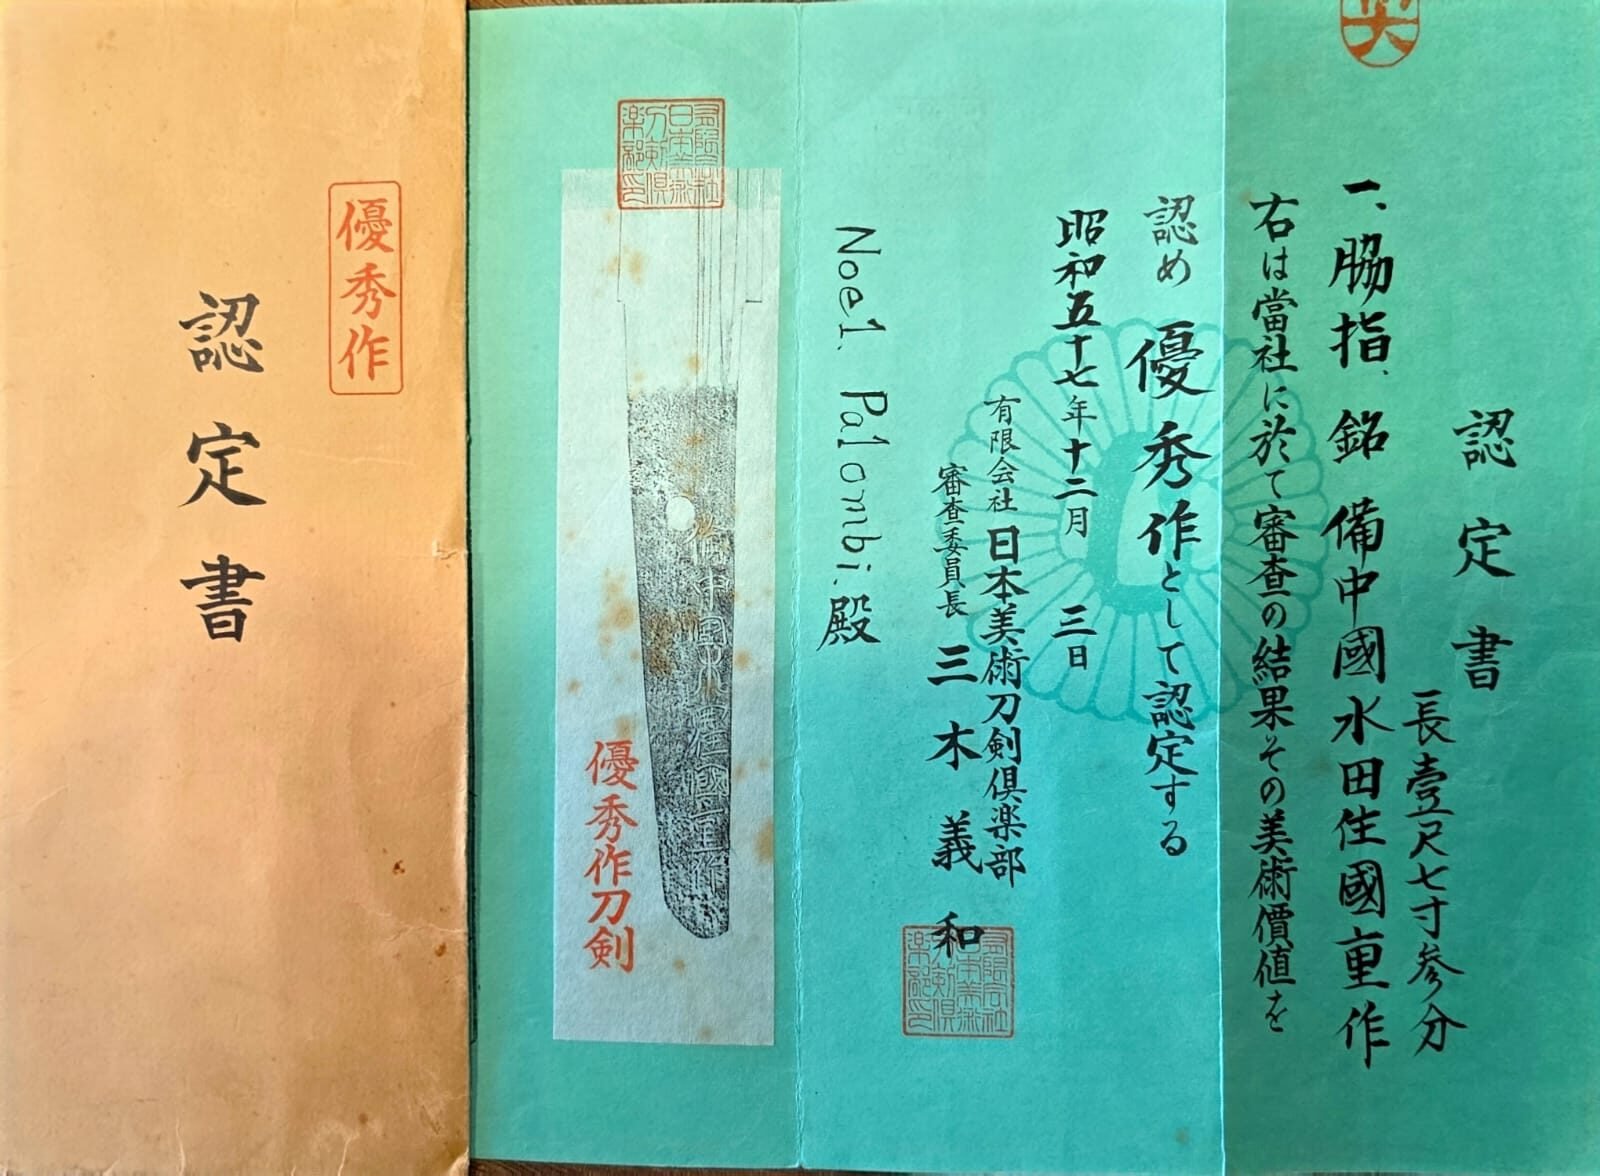 認定書
長壹尺七寸参分
一、脇指、銘 備中國水田住國重作
右は當社に於て審査の結果その美術價値を
認め 優秀作として認定する
昭和五十七年十二月 三日
有限会社 日本美術刀剣倶楽部
審査委員長 三木義和
Noel. Palombi. 殿
有限会社日本美術刀剣倶楽部印
有限会社日本美術刀剣倶楽部印
備中國水田住國重作
優秀作刀剣
優秀作
認定書